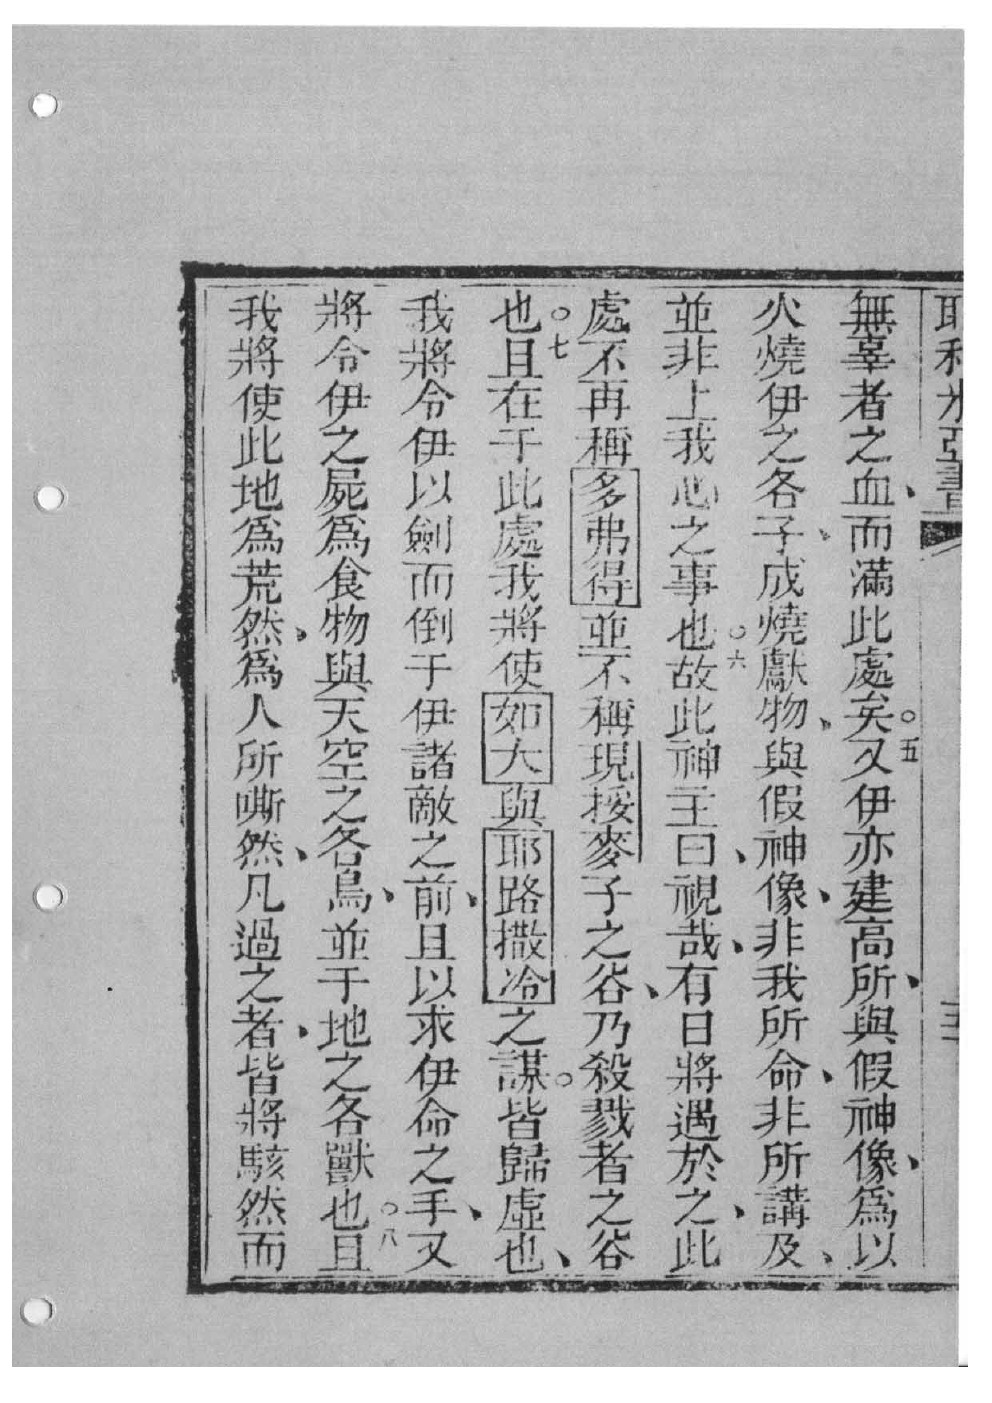 耶利米亞書
無辜者之血、而滿此處矣○五又伊亦建高所、與假神像、爲以
火燒伊之各子、成燒獻物、與假神像、非我所命、非所講及、
並非上我心之事也○六故此神主曰、視哉、有日將遇於之、此
處不再稱多弗得並不稱現挼麥子之谷、乃殺戮者之谷
也○七且在于此處我將使如大與耶路撒冷之謀。皆歸虛也、
我將令伊以劍而倒于伊諸敵之前、且以求伊命之手、又
將令伊之屍爲食物與天空之各鳥、並于地之各獸也○八且
我將使此地爲荒然、爲人所嘶然、凡過之者、皆將駭然而